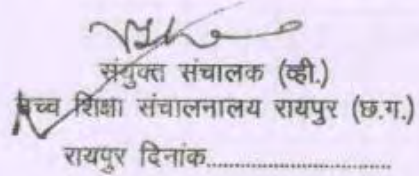 संयुक्त संचालक (व्ही.)
उच्च शिक्षा संचालनालय रायपुर (छ.ग.)
रायपुर दिनांक..............................